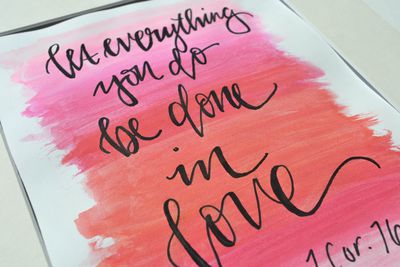 let everything
you do
be done
in
love
1 Cor. 16